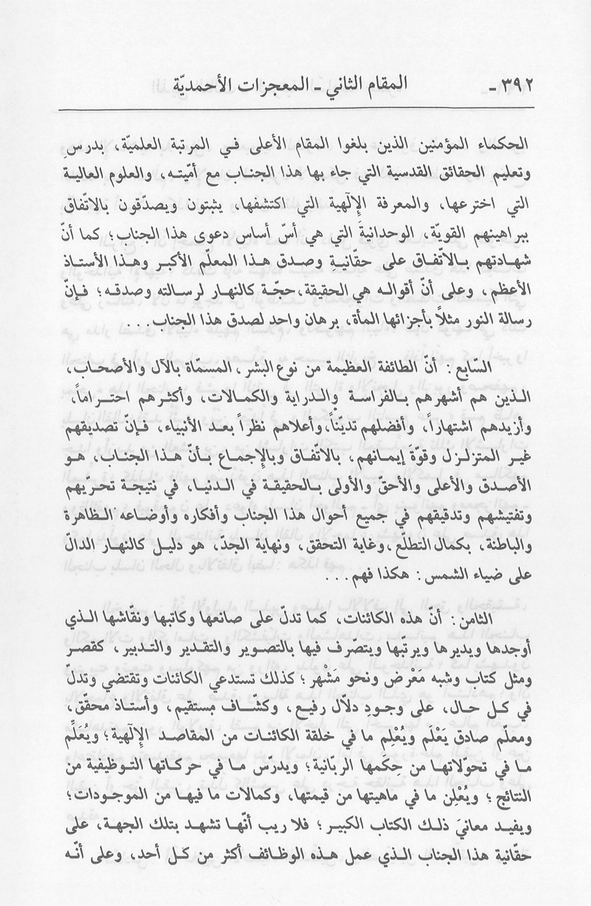 ٣٩٢ - المقام الثاني - المعجزات الأحمديّة
الحكماء المؤمنين الذين بلغوا المقام الأعلى في المرتبة العلميّة، بدرسِ
وتعليم الحقائق القدسية التي جاء بها هذا الجناب مع أمّيته، والعلوم العالية
التي اخترعها، والمعرفة الإلٓهية التي اكتشفها، يثبتون ويصدّقون بالاتّفاق
ببراهينهم القويّة، الوحدانيةَ التي هي أسّ أساس دعوى هذا الجناب؛ كما أنّ
شهادتهم بالاتّفاق على حقانية وصدق هذا المعلّم الأكبر وهذا الأستاذ
الأعظم، وعلى أنّ أقواله هي الحقيقة، حجّة كالنهار لرسالته وصدقه؛ فإنّ
رسالة النور مثلاً بأجزائها المأة، برهان واحد لصدق هذا الجناب...
السّابع: أنّ الطائفة العظيمة من نوع البشر، المسمّاة بالآل والأصحاب،
الذين هم أشهرهم بالفراسة والدراية والكمالات، وأكثرهم احتراماً،
وأزيدهم اشتهاراً، وأفضلهم تديّناً، وأعلاهم نظراً بعد الأنبياء، فإنّ تصديقهم
غير المتزلزل وقوّة إيمانهم، بالاتّفاق وبالإجماع بأنّ هذا الجناب، هو
الأصدق والأعلى والأحقّ والأولى بالحقيقة في الدنيا، في نتيجة تحرّيهم
وتفتيشهم وتدقيقهم في جميع أحوال هذا الجناب وأفكاره وأوضاعه الظاهرة
والباطنة، بكمال التطلّع، وغاية التحقق، ونهاية الجدّ، هو دليل كالنهار الدالّ
على ضياء الشمس: هكذا فهم...
الثامن: أنّ هذه الكائنات، كما تدلّ على صانعها وكاتبها ونقّاشها الذي
أوجدها ويديرها ويرتّبها ويتصرف فيها بالتصوير والتقدير والتدبير، كقصر
ومثل كتاب وشبه مَعْرض ونحو مَشْهر؛ كذلك تستدعي الكائنات وتقتضي وتدلّ
في كل حال، على وجود دلّال رفيع، وكشّاف مستقيم، وأستاذ محقّق،
ومعلّم صادق يَعْلم ويُعْلِم ما في خلقة الكائنات من المقاصد الإلٓهية؛ ويُعَلِّم
ما في تحوّلاتها من حِكَمها الربّانية؛ ويدرّس ما في حركاتها التوظيفية من
النتائج؛ ويُعْلن ما في ماهيتها من قيمتها، وكمالات ما فيها من الموجودات؛
ويفيد معانيَ ذلك الكتاب الكبير؛ فلا ريب أنّها تشهد بتلك الجهة، على
حقّانية هذا الجناب الذي عمل هذه الوظائف أكثر من كل أحد، وعلى أنّه